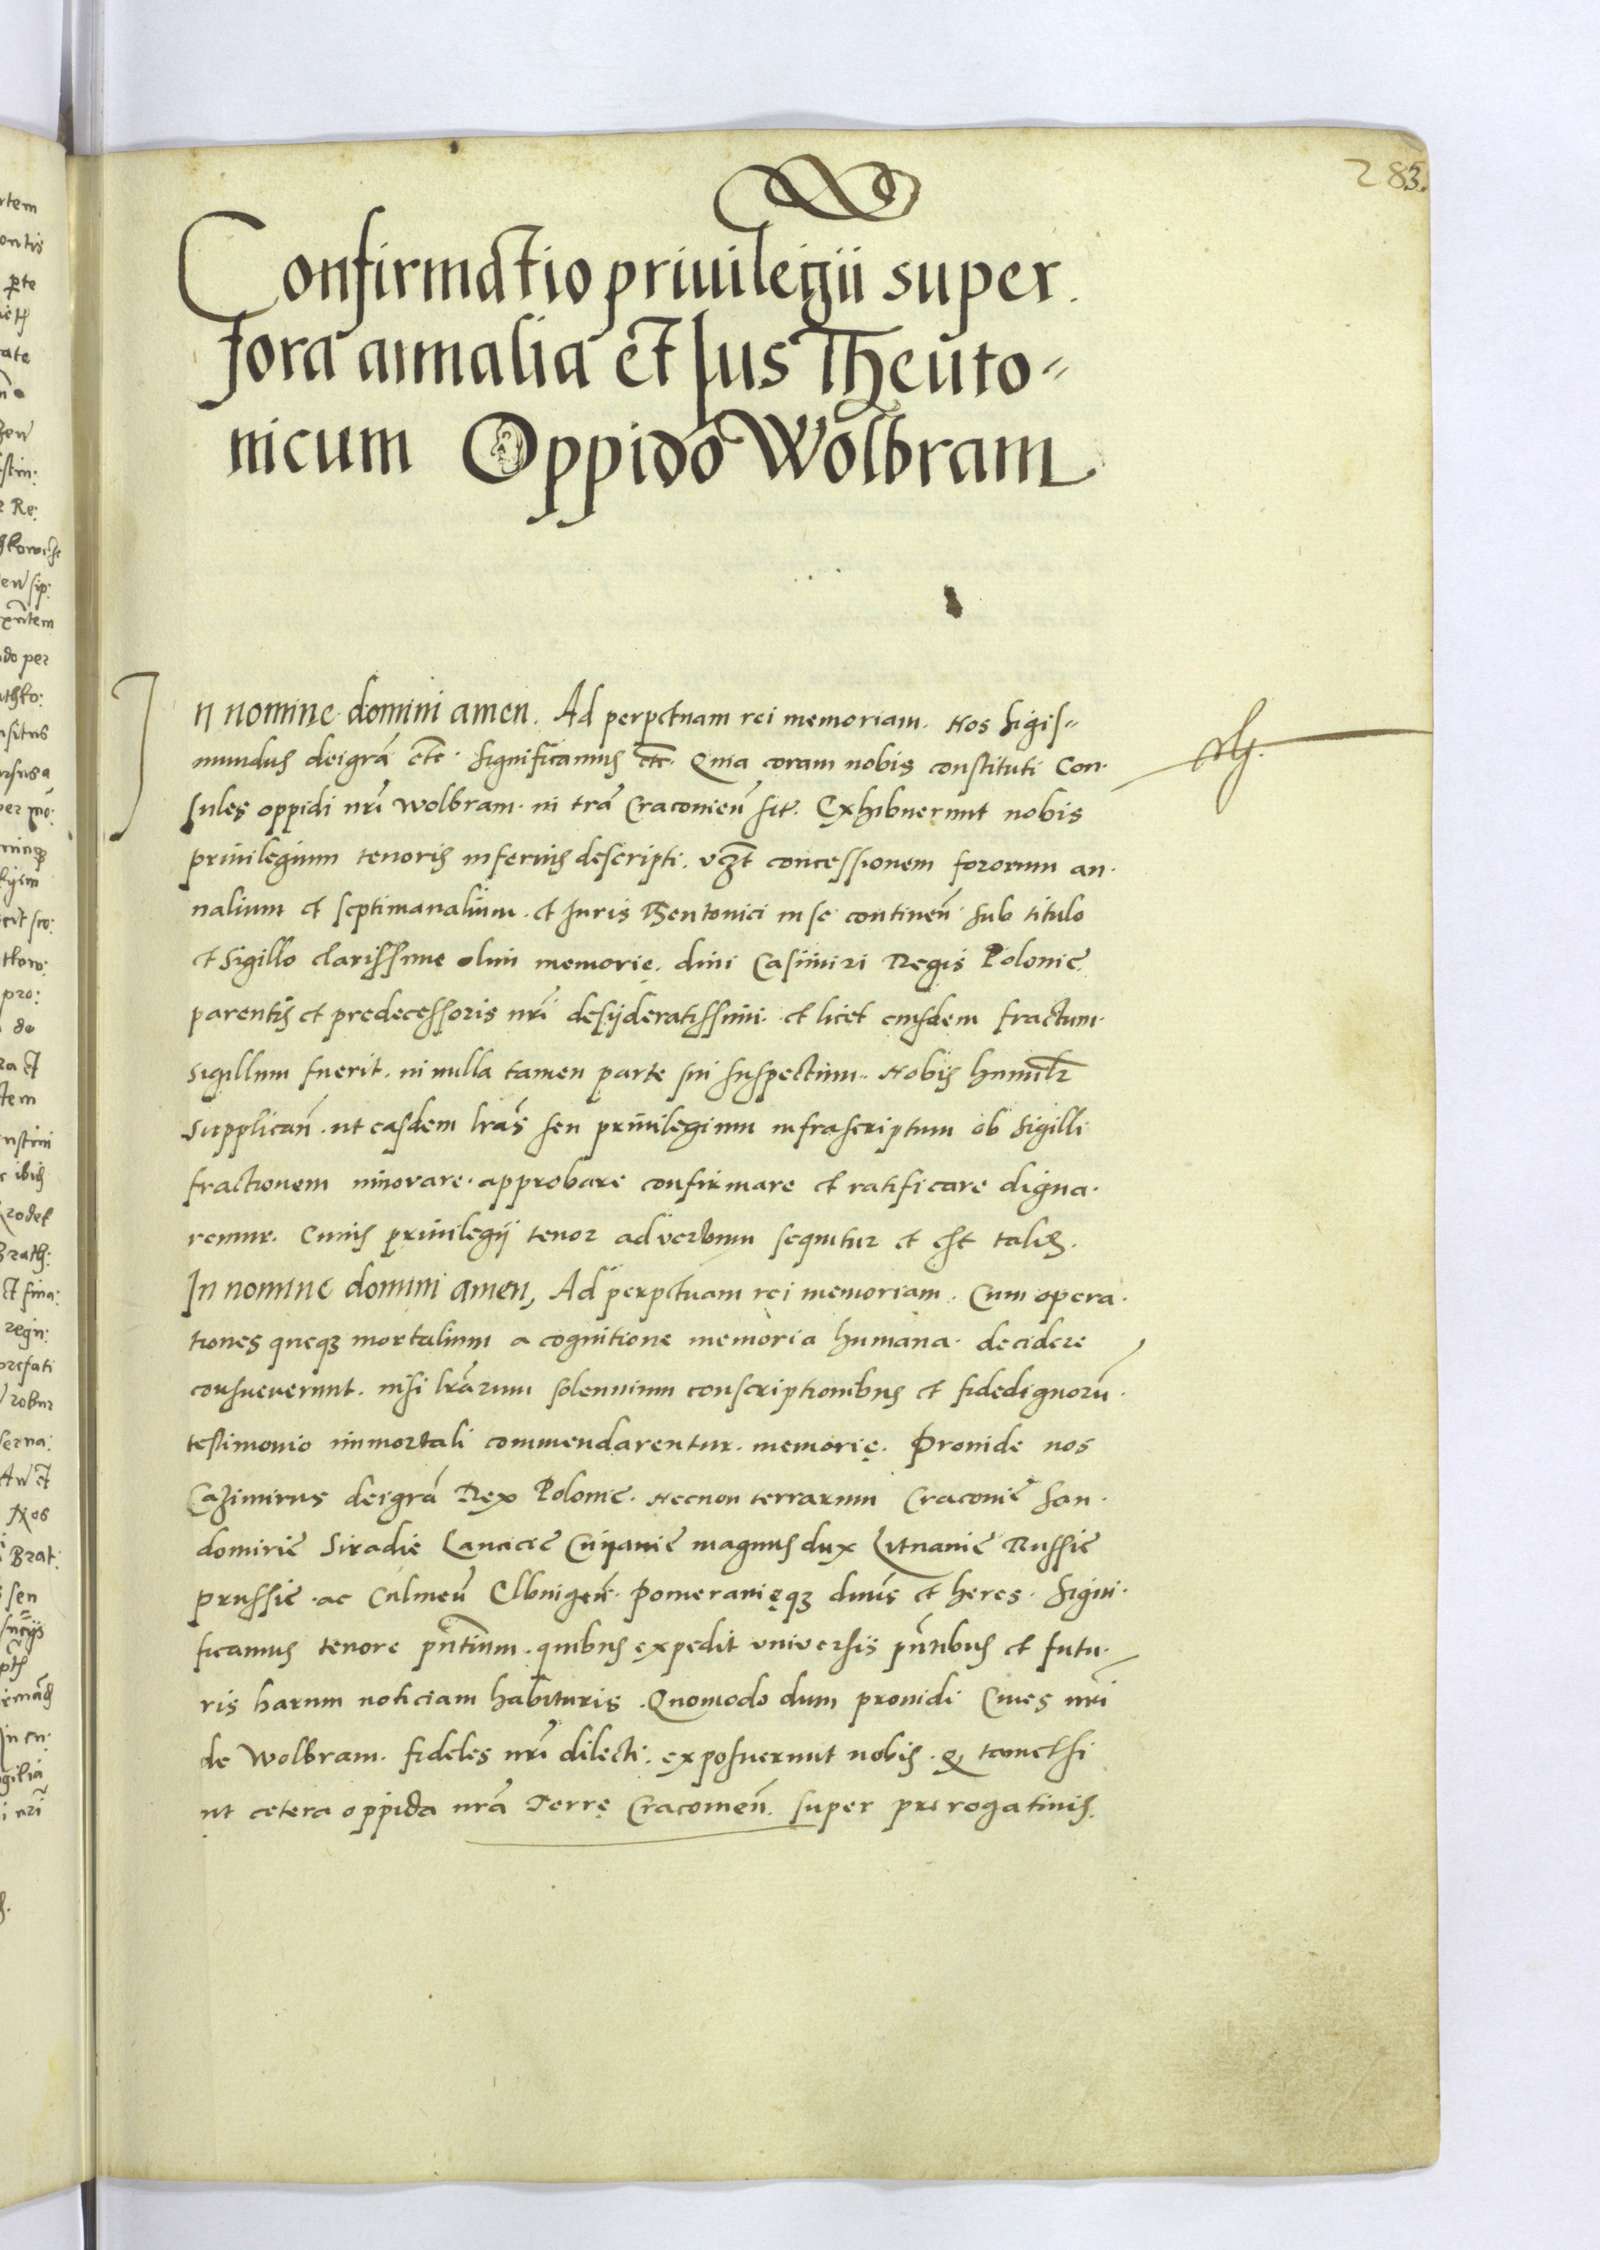 283.
Confirmatio priuilegii super.
fora annalia et Ius Theuto⸗
nicum Oppido Wolbram
In nomine domini amen. Ad perpetuam rei memoriam. Nos Sigis⸗
mundus deigrã etc. Significamus etc. Quia coram nobis constituti Con.
sules oppidi nrĩ Wolbram. in trã Cracovieñ sit. Exhibuerunt nobis
priuilegium tenoris inferius descripti. vczt concessionem fororum an.
nalium et septimanalium. et Iuris Theutonici in se contineñ sub titulo
et Sigillo clarissime olim memorie. diui Casimiri Regis Polonie.
parentis et predecessoris nrĩ desyderatissimi. et licet eiusdem fractum.
sigillum fuerit. in nulla tamen parte sui suspectum. Nobis humilr
supplicañ. ut easdem lrãs seu priuilegium infrascriptum ob Sigilli
fractionem innovare. approbare confirmare et ratificare digna.
remur. Cuius priuilegij tenor ad verbum sequitur et est talis.
In nomine domini amen, Ad perpetuam rei memoriam. Cum opera.
tiones queq3 mortalium a cognitione memoria humana. decidere
consueverunt. nisi lrãrum solennium conscriptionibus et fidedignorũ.
testimonio immortali commendarentur. memorię. Prouide nos
Cazimirus deigrã Rex Polonie. Necnon terrarum Cracovie San.
domirie Siradie Lancicie Cuyavie magnus dux Litnanie Russie
prussie. ac Culmeñ Elbingeñ. Pomeranięq3 dnũs et heres. Signi.
ficamus tenore pñtium. quibus expedit vniversis pñtibus et futu.
ris harum noticiam habituris. Quomodo dum prouidi Ciues nrĩ
de Wolbram. fideles nrĩ dilecti. exposuerunt nobis. q tametsi
ut cetera oppida nrã Terrę Cracovieñ. super prerogatiuis.